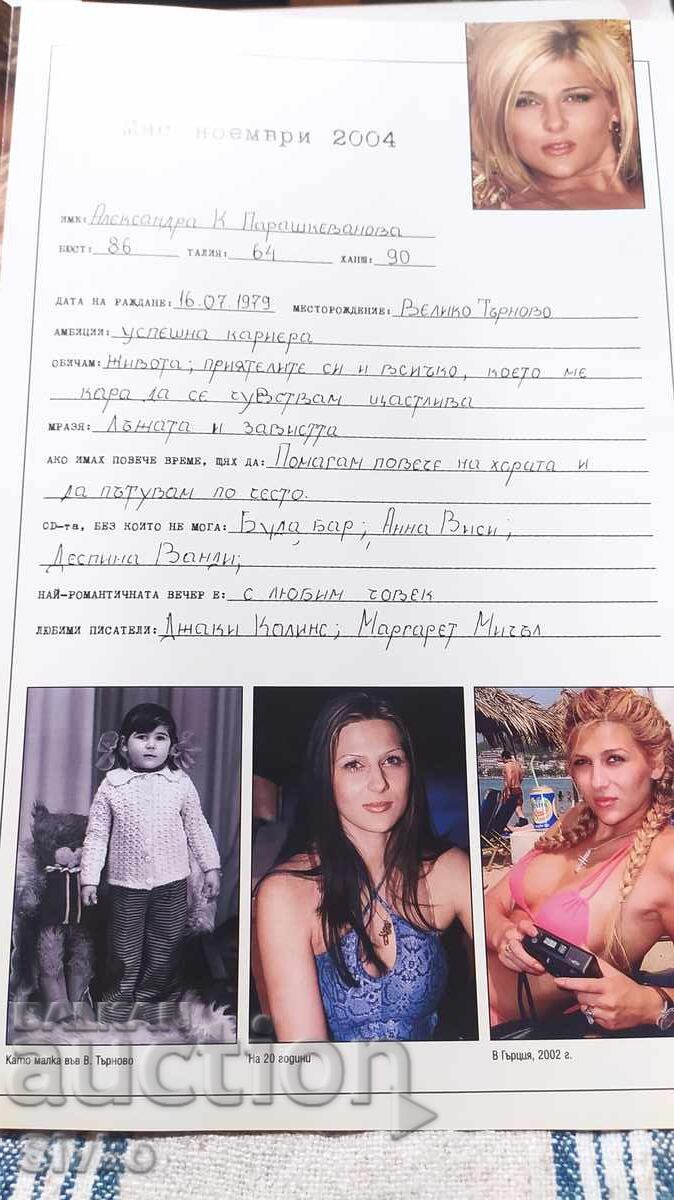 Мис ноември 2004
ИМЕ: Александра К Парашкеванова
БЮСТ: 86 ТАЛИЯ: 64 ХАНШ: 90
ДАТА НА РАЖДАНЕ: 16.07.1979 МЕСТОРОЖДЕНИЕ: Велико Търново
АМБИЦИИ: успешна кариера
ОБИЧАМ: живота; приятелите си и всичко, което ме
кара да се чувствам щастлива
МРАЗЯ: Лъжата и завистта
АКО ИМАХ ПОВЕЧЕ ВРЕМЕ, ЩЯХ ДА: Помагам повече на хората и
да пътувам по често.
CD-та, БЕЗ КОИТО НЕ МОГА: Буда бар; Анна Виси;
Деспина Ванди;
НАЙ-РОМАНТИЧНАТА ВЕЧЕР Е: с любим човек
ЛЮБИМИ ПИСАТЕЛИ: Джаки Колинс; Маргарет Мичъл
Като малка във В. Търново
На 20 години
В Гърция, 2002 г.
BALKAN
auction